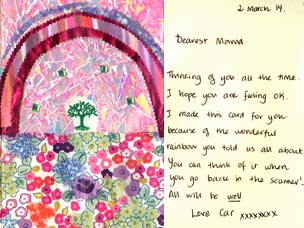 2 March 14.
Dearest Mama
Thinking of you all the time.
I hope you are feeling OK.
I made this card for you
because of the wonderful
rainbow you told us all about.
You can think of it when
you go back in the scanner!
All will be well
Love Car xxxxxxxx